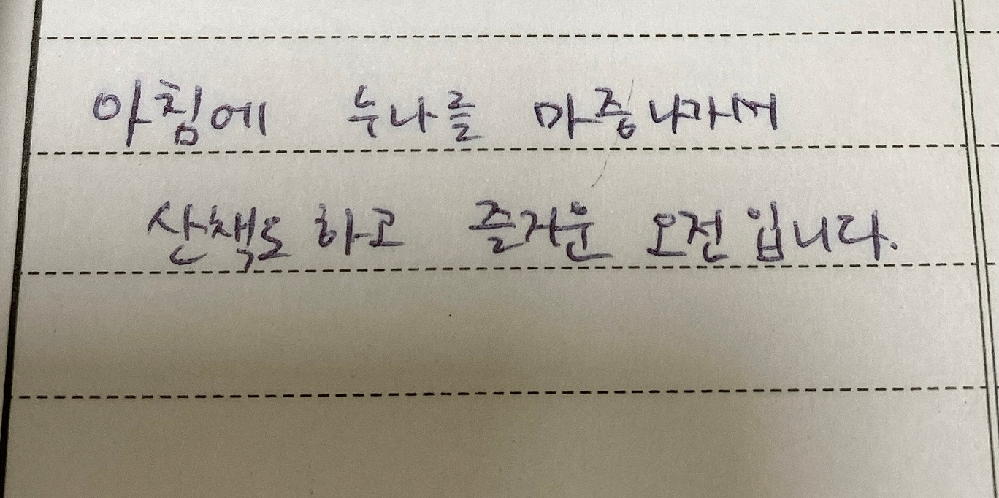 아침에 누나를 마중나가서
산책도 하고 즐거운 오전입니다.